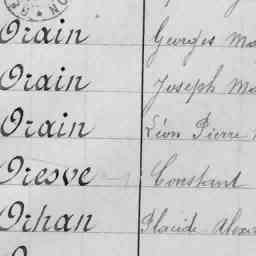 Orain Georges Ma
Orain Joseph Ma
Orain Léon Pierre
Oresve Constant
Orhan Placide Alexa